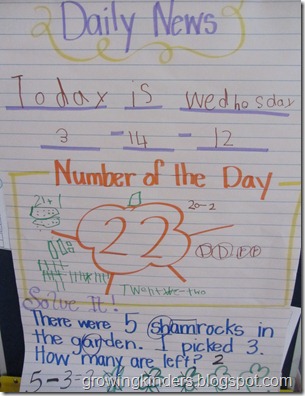 Daily News
Today is Wednesday
3 - 14 - 12
Number of the Day
21+1
20-2
22
D D P P
Twenty-two
Solve It!
There were 5 shamrocks in
the garden. I picked 3.
How many are left? 2
5-3=2
growingkinders.blogspot.com